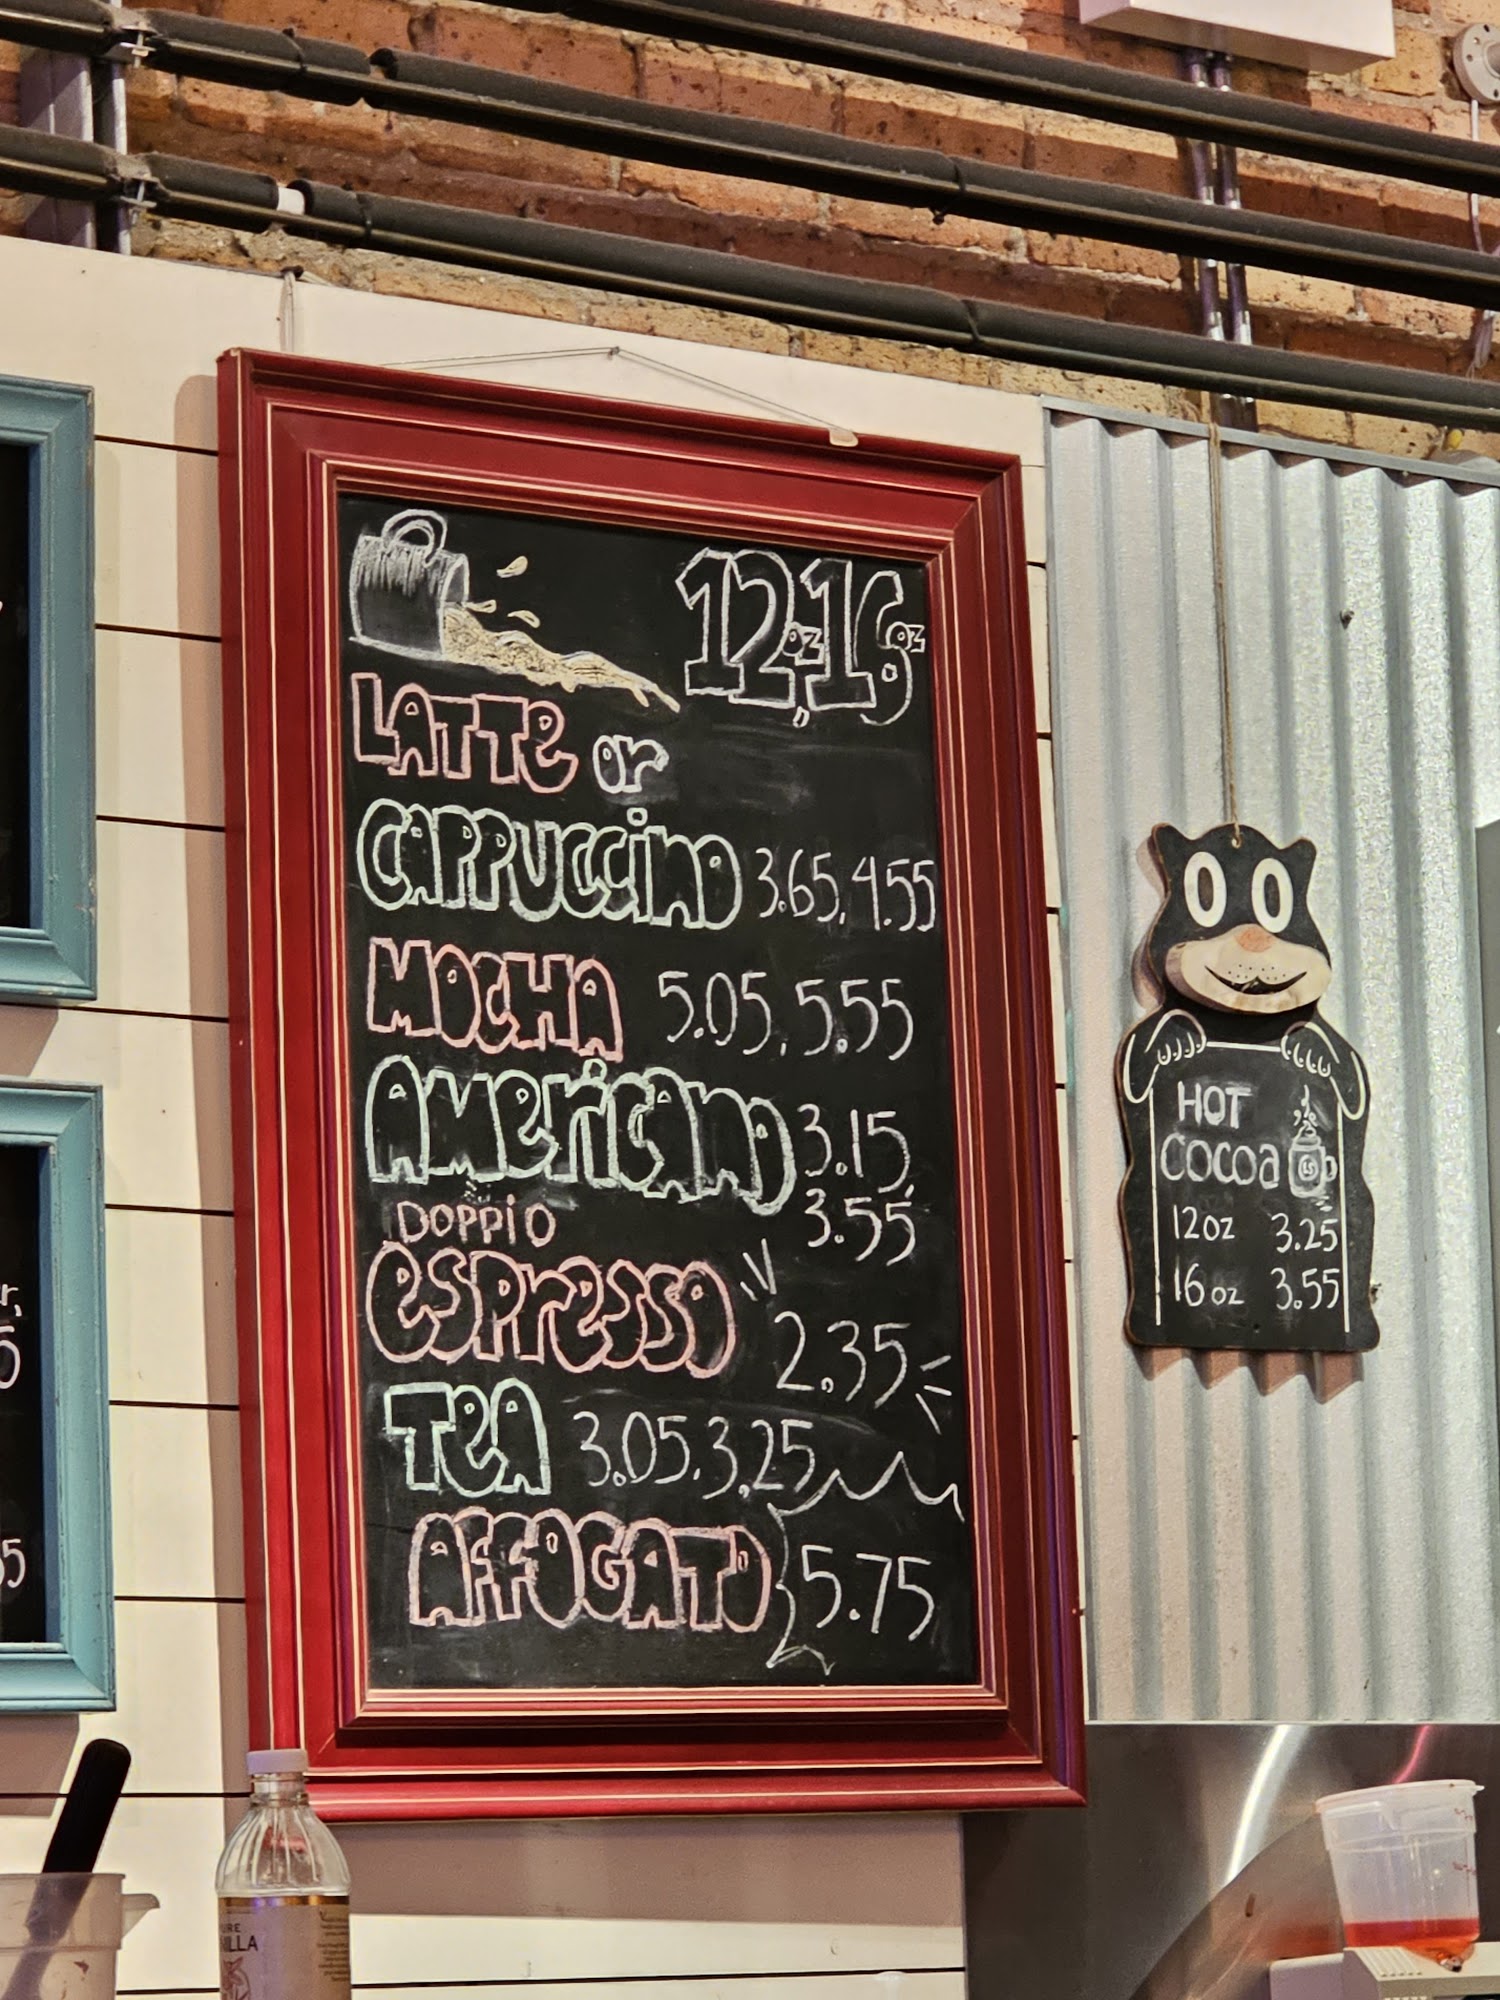 12oz, 16oz
LATTE or
CAPPUCCINO 3.65, 4.55
MOCHA 5.05, 5.55
AMERICANO 3.15,
3.55
DOPPIO
ESPRESSO 2.35
TEA 3.05, 3.25
AFFOGATO 5.75
HOT
COCOA
12oz 3.25
16oz 3.55